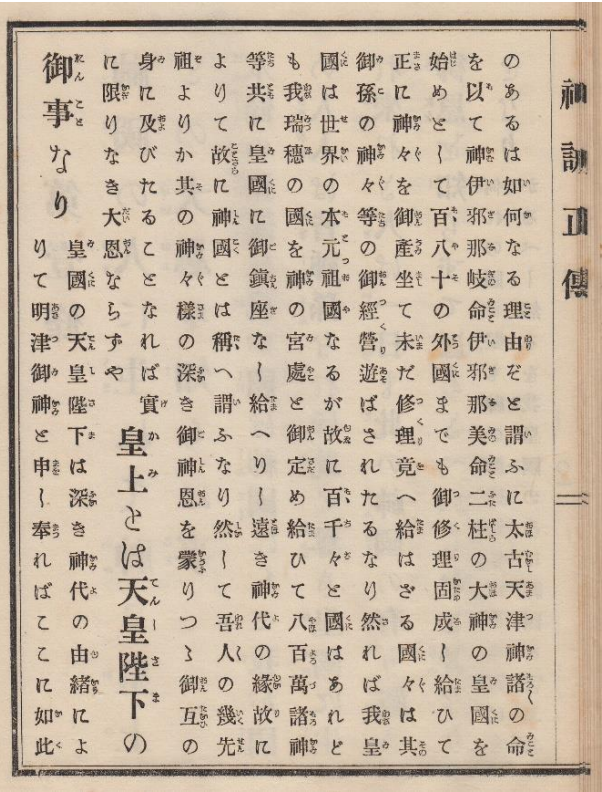 神訓正傳
二
のあるは如何なる理由ぞと謂ふに太古天津神諸の命
を以て神伊邪那岐命伊邪那美命二柱の大神の皇國を
始めとして百八十の外國までも御修理固成し給ひて
正に神々を御產坐て未だ修理竟へ給はざる國々は其
御孫の神々等の御經營遊ばされたるなり然れば我皇
國は世界の本元祖國なるが故に百千々と國はあれど
も我瑞穗の國を神の宮處と御定め給ひて八百萬諸神
等共に皇國に御鎭座なし給へりし遠き神代の緣故に
よりて故に神國とは稱へ謂ふなり然して吾人の幾先
祖よりか其の神々樣の深き御神恩を蒙りつゝ御互の
身に及びたることなれば實
に限りなき大恩ならずや
皇上とは天皇陛下の
御事なり
皇國の天皇陛下は深き神代の由緖によ
りて明津御神と申し奉ればここに如此